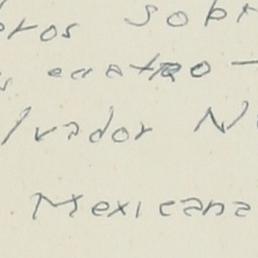 eros sobr
s cuatro -
lvador N
Mexicana